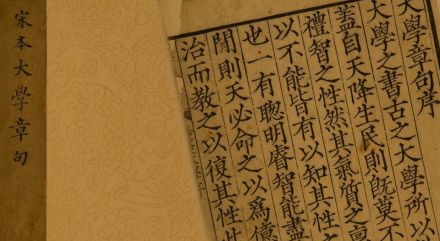 大學章句序
大學之書古之大學所以
蓋自天降生民則旣莫不
禮智之性然其氣質之稟
以不能皆有以知其性
也一有聰明睿智能盡
閒則天必命之以爲億
治而教之以復其性
宋本大學章句